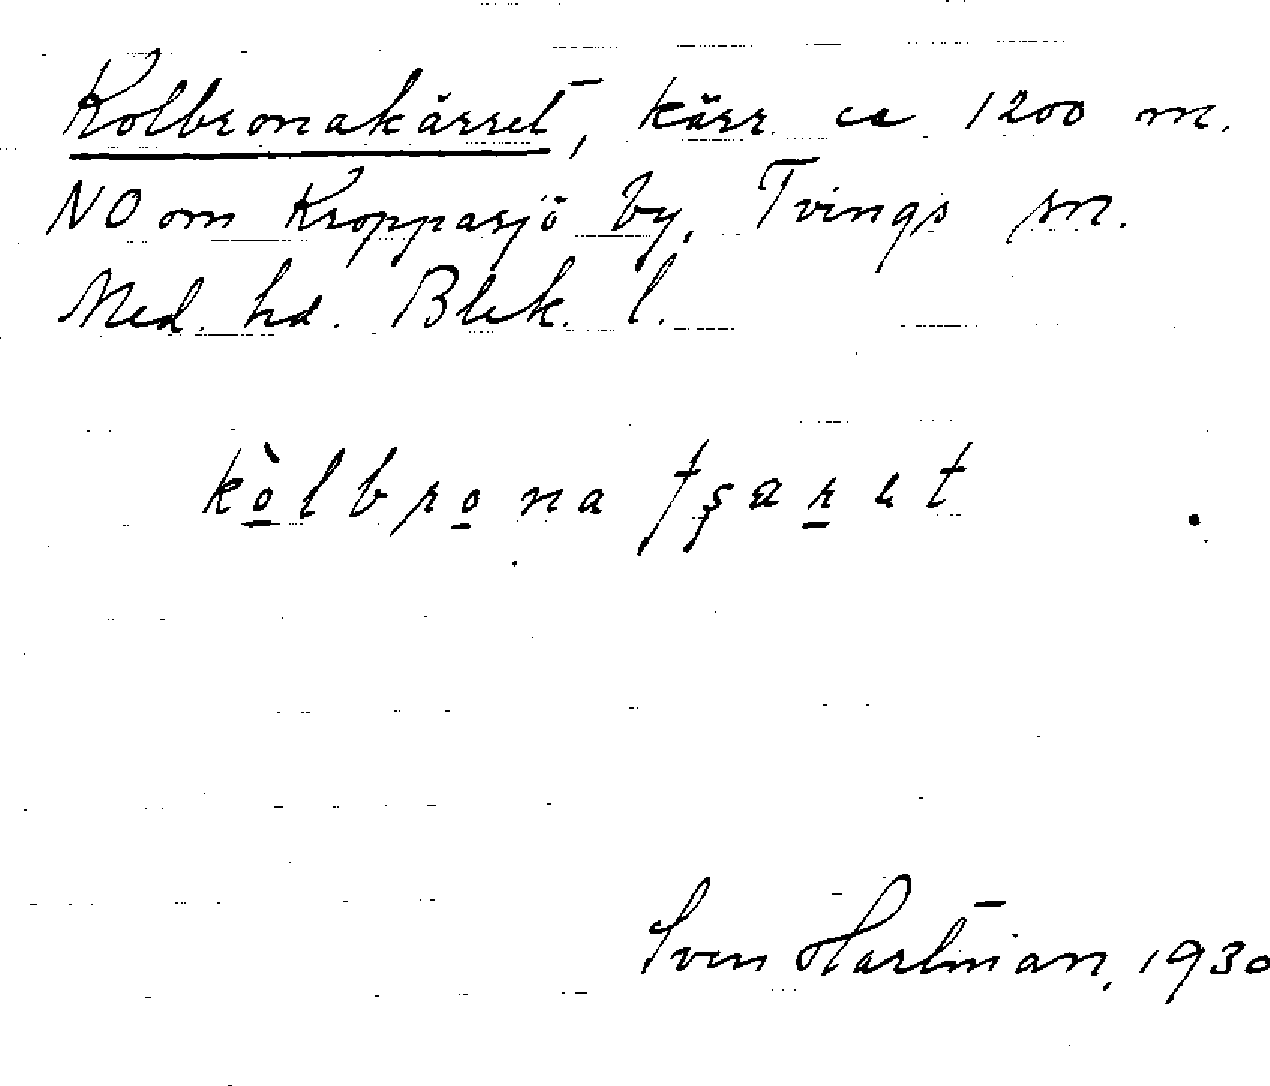 Kolbronakärret, kärr ca 1200 m.
NO om Kroppasjö by, Tvings sn.
Med. hd. Blek. l.
kò̱lbro̱na tşaṟet
Sven Hartman, 1930